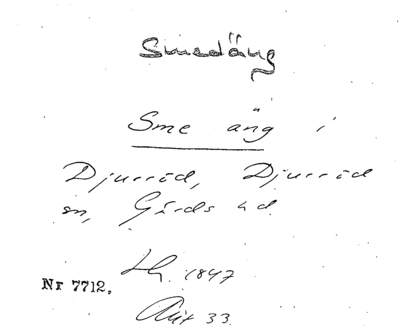 Smedäng
Sme äng i
Djurröd, Djurröd
sn, Gärds hd.
Lh. 1847
Nr 7712.
Akt 33.